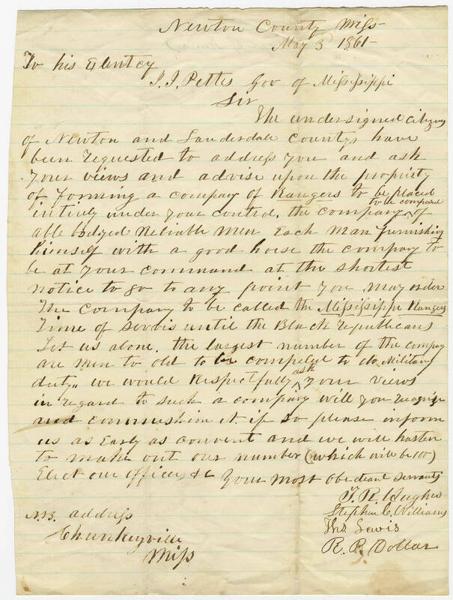 Newton County Miss
May 3 1861
To his Exlentcy
J. J. Pettes Gov of Mississippi
Sir
The undersigned citizens
of Newton and Lauderdale Countys have
been requested to address you and ask
your views and advise upon the propriety
of forming a company of Rangers to be placed
entirely under your control, the company to be compose of
able bodyed Reliable Men Each Man furnishing
himself with a good horse the company to
be at your command at the shortest
notice to go to any point you may order
The company to be called the Mississippi Rangers
Time of servis until the Black Republicans
Let us alone. the largest number of the company
are men to old to be compelled to do Military
duty,, we would Respectfully ask your views
in regard to such a company will you
and commission it if so please inform
us as Early as convent and we will hasten
to make out our number (which will be 100)
Elect our officers &c your most obedient servants
T. R. Hughes
Stephen C. Williams
Lewis
R. P. Dollar
N.B. address
Chunkeyville
Miss